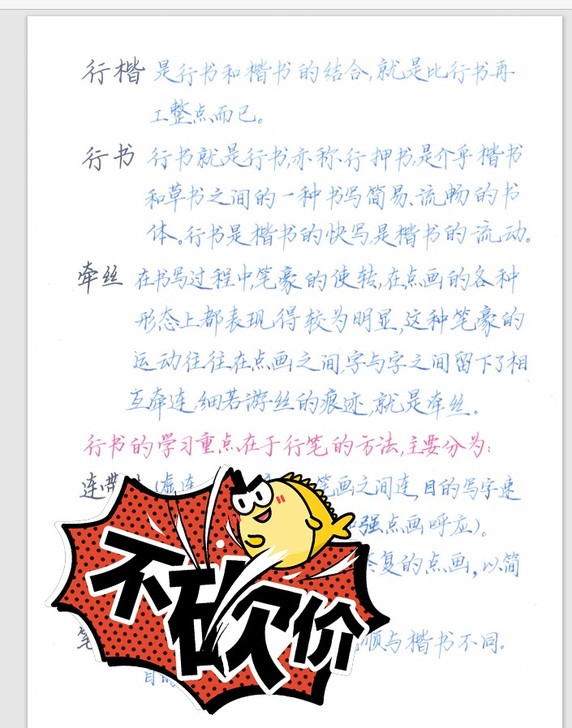 行楷 是行书和楷书的结合,就是比行书再
工整点而已。
行书 行书就是行书,亦称行押书,是介乎楷书
和草书之间的一种书写简易、流畅的书
体。行书是楷书的快写,是楷书的流动。
牵丝 在书写过程中,笔豪的使转,在点画的各种
形态上都表现得较为明显,这种笔豪的
运动往往在点画之间,字与字之间留下了相
互牵连,细若游丝的痕迹,就是牵丝。
行书的学习重点在于行笔的方法,主要分为:
连带 连 笔画之间连,目的写字速
强点画呼应)。
复的点画,以简
不砍价
笔 顺与楷书不同。
目的